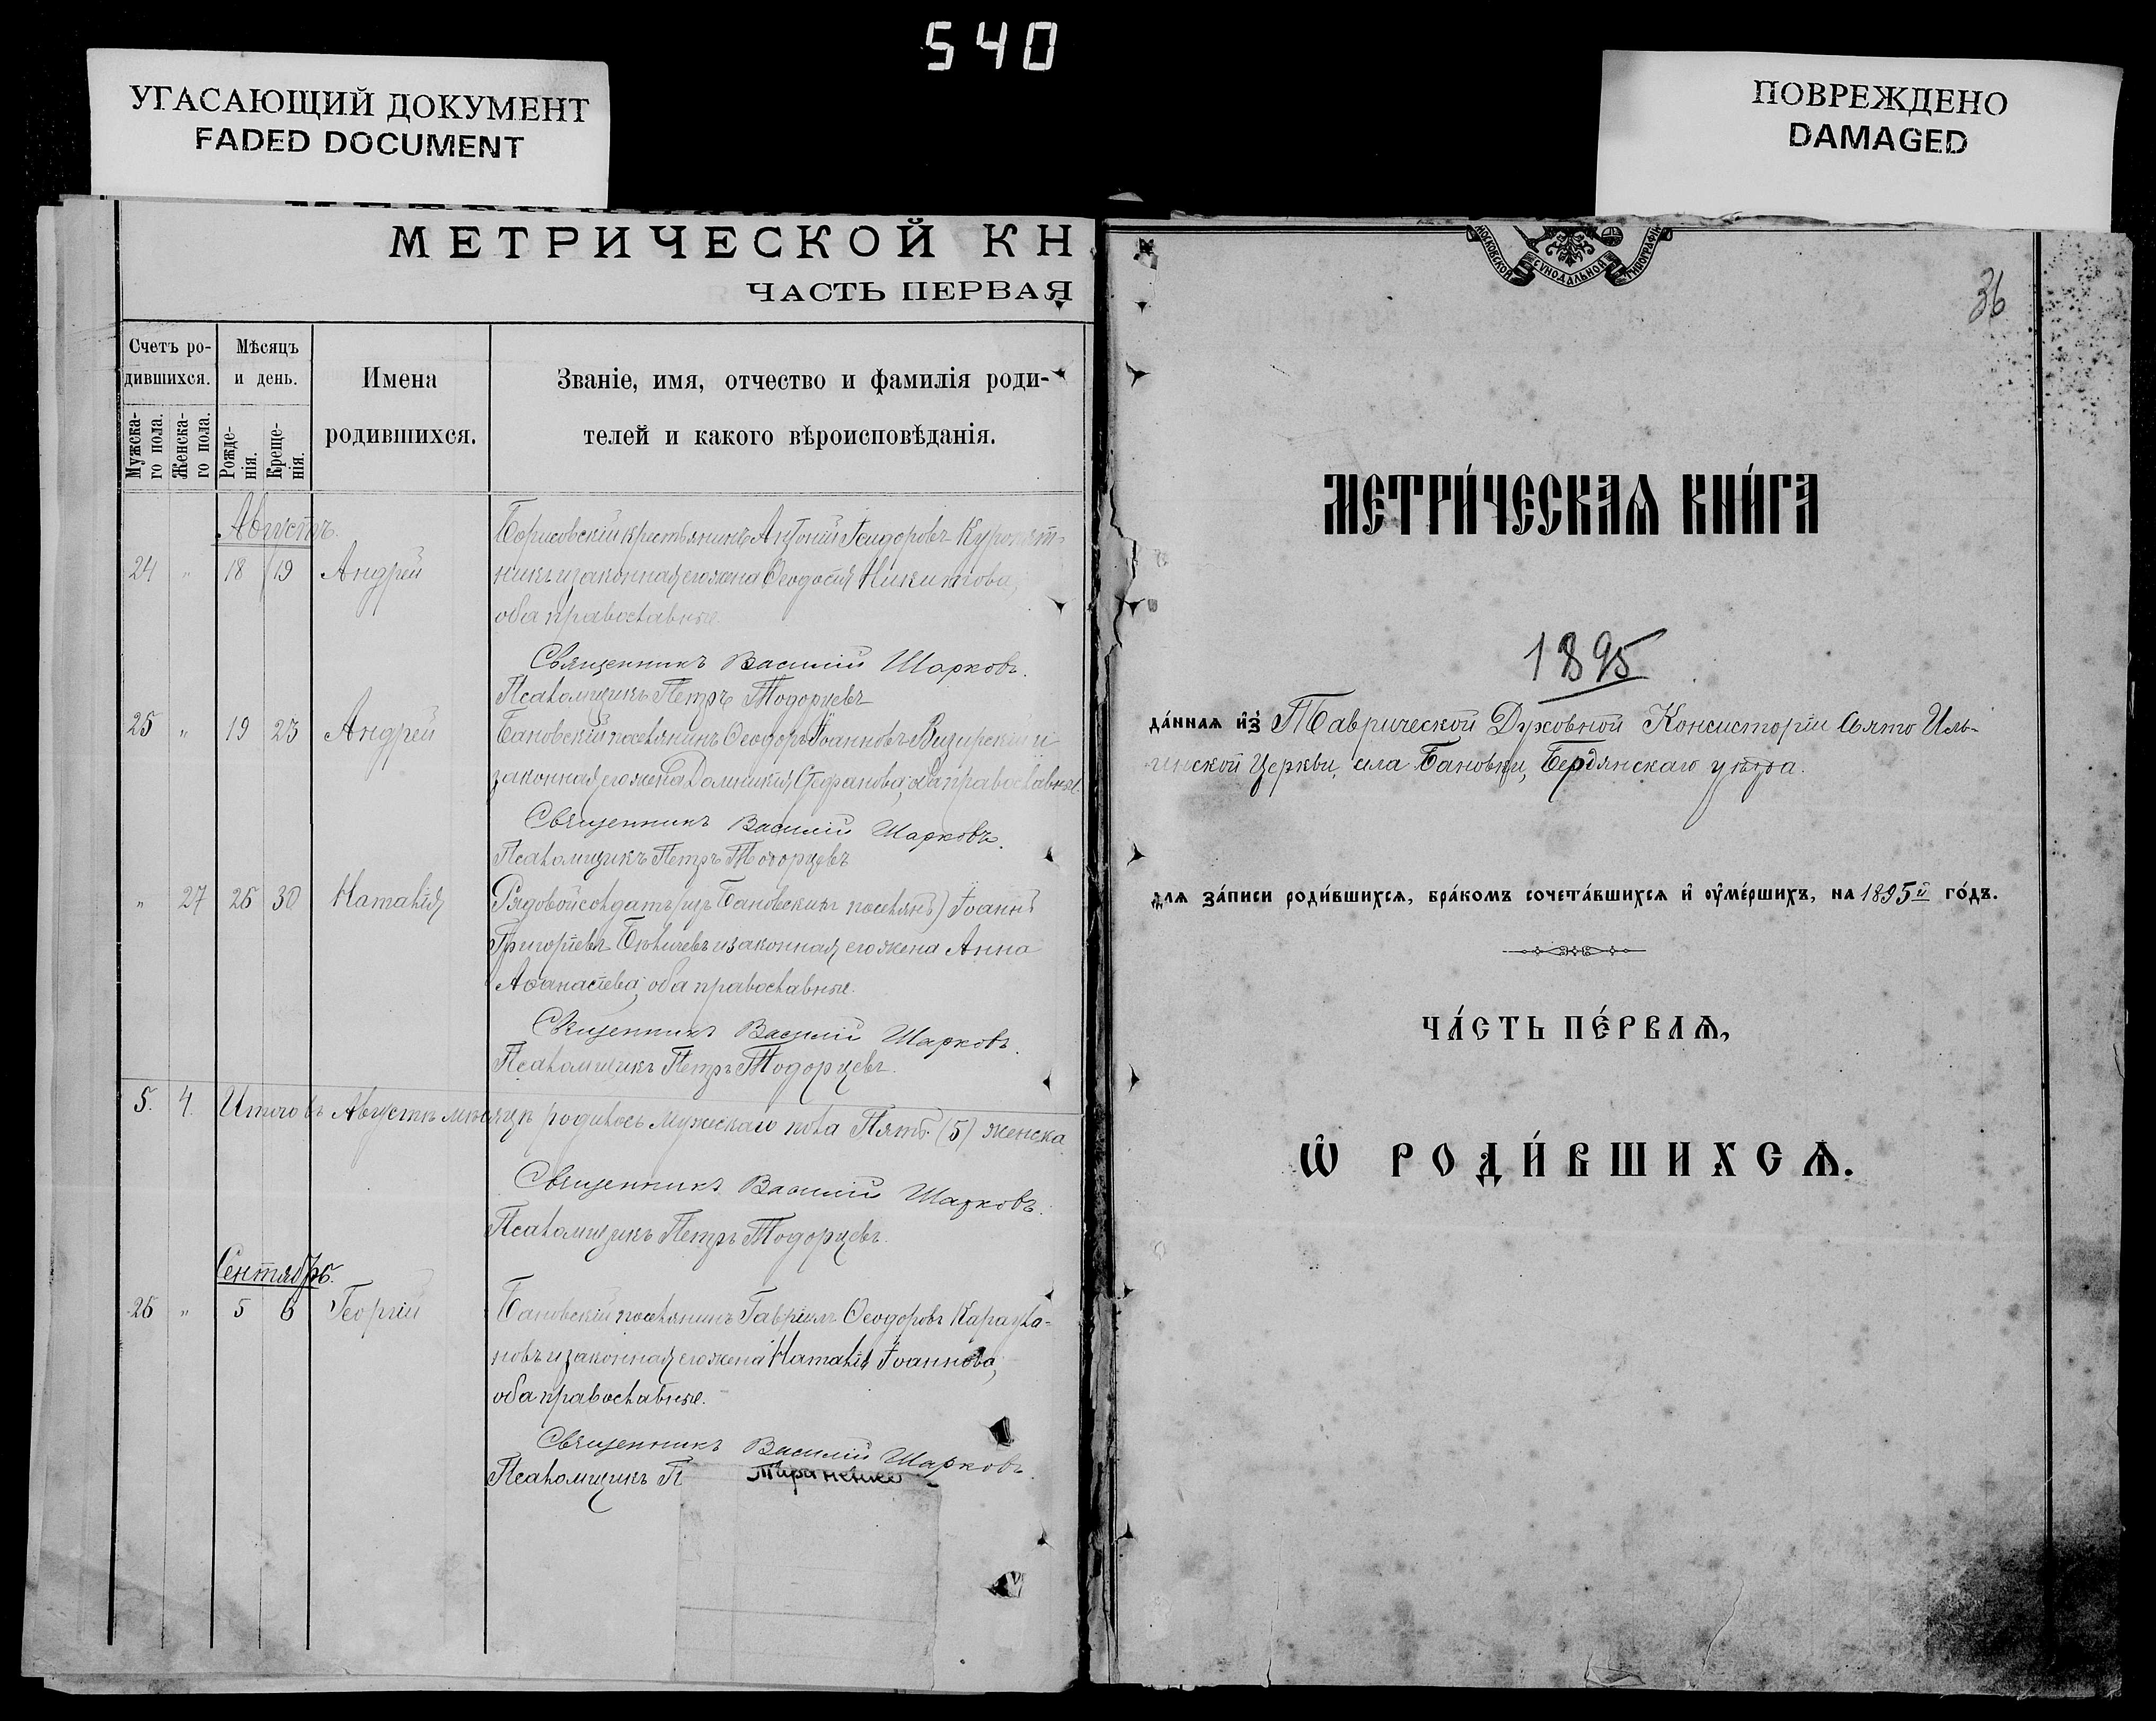 540
УГАСАЮЩИЙ ДОКУМЕНТ
FADED DOCUMENT
ПОВРЕЖДЕНО
DAMAGED
МЕТРИЧЕСКОЙ КН
ЧАСТЬ ПЕРВАЯ
Счетъ ро-
дившихся.
Мѣсяцъ
и день.
Имена
родившихся.
Званіе, имя, отчество и фамилія роди-
телей и какого вѣроисповѣданія.
Мужска-
го пола.
Женска-
го пола.
Рожде-
нія.
Креще-
нія.
Августъ.
24 " 18 19 Андрей
Борисовскій крестьянинъ Антоній Исидоровъ
никъ и законная его жена Ѳеодосія Никитова,
оба православные.
Священникъ Василій Шарковъ.
Псаломщикъ Петръ Тодорцевъ
25 " 19 23 Андрей
Бановскій поселянинъ Ѳеодоръ Іоанновъ Визирскій и
законная его жена Домникія Стефанова, оба православные.
Священникъ Василій Шарковъ.
Псаломщикъ Петръ Тодорцевъ
" 27 26 30 Наталія
Рядовой солдатъ (изъ Бановскихъ поселянъ) Іоаннъ
Григоріевъ и законная его жена Анна
Аѳанасіева, оба православные.
Священникъ Василій Шарковъ.
Псаломщикъ Петръ Тодорцевъ.
5. 4. Итого въ Августѣ мѣсяцѣ родилось мужескаго пола Пять (5) женска
Священникъ Василій Шарковъ.
Псаломщикъ Петръ Тодорцевъ.
Сентябрь.
26 " 5 6 Георгій
Бановскій поселянинъ Гавріилъ Ѳеодоровъ Караула-
новъ и законная его жена Наталія Іоаннова,
оба православные.
Священникъ Василій Шарковъ.
Псаломщикъ П
МОСКОВСКОЙ СѴНОДАЛЬНОЙ ТИПОГРАФІИ
36
МЕТРИ́ЧЕСКАѦ КНИ́ГА
1895
да́нная и҆з̾ Таврической Духовной Консисторіи Свято Иль-
инской Церкви, села Бановки, Бердянскаго уѣзда.
для за́писи роди́вшихся, бра́комъ сочета́вшихся и҆ оу҆ме́ршихъ, на 1895й го́дъ.
ЧА́СТЬ ПЕ́РВАѦ,
Ѡ҆ РОДИ́ВШИХСѦ.